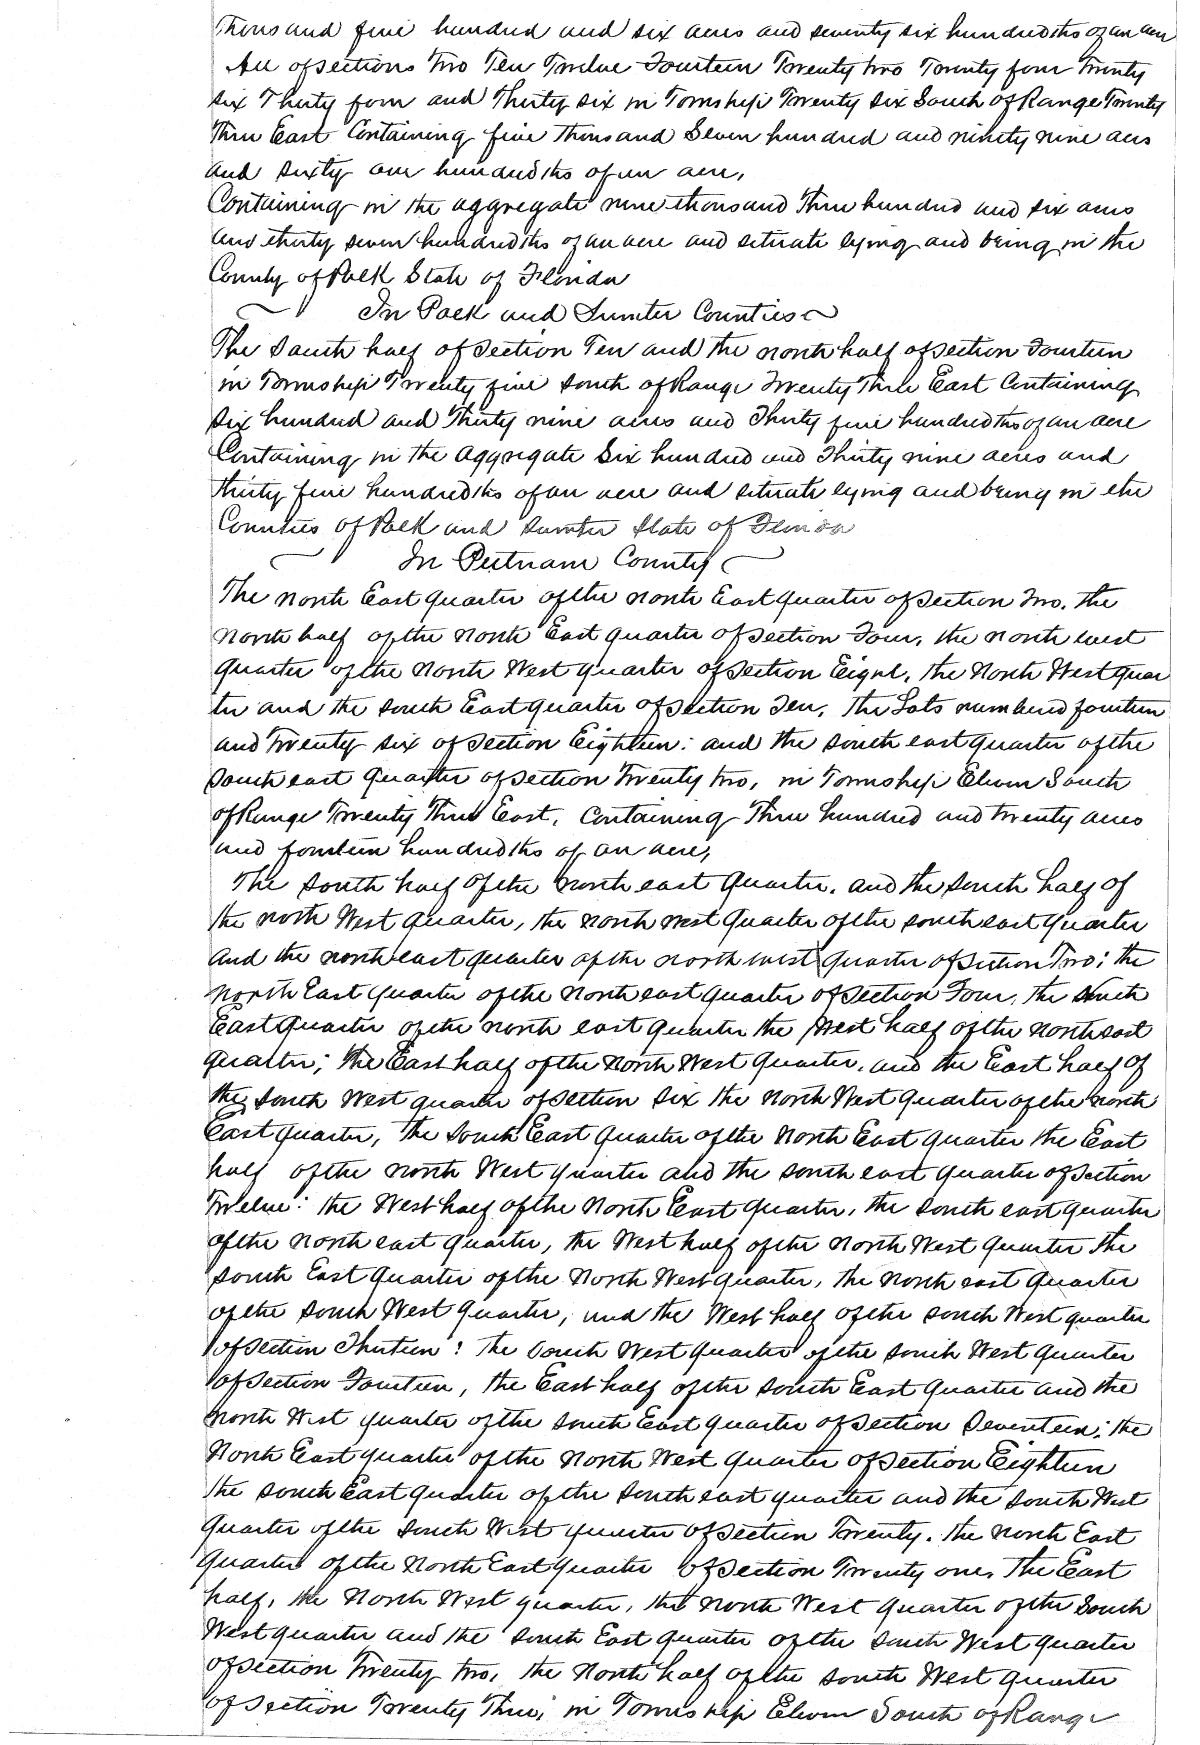 Thousand five hundred and six acres and seventy six hundredths of an acre
All of sections Two Ten Twelve Fourteen Twenty two Twenty four Twenty
six Thirty four and Thirty six in Township Twenty six South of Range Twenty
Three East Containing five thousand Seven hundred and ninety nine acres
and sixty one hundredths of an acre,
Containing in the aggregate nine thousand Three hundred and six acres
and thirty seven hundredths of an acre and situate lying and being in the
County of Polk State of Florida
In Polk and Sumter Counties
The South half of Section Ten and the north half of Section Fourteen
in Township Twenty five South of Range Twenty Three East Containing
Six hundred and Thirty nine acres and Thirty five hundredths of an acre
Containing in the aggregate Six hundred and Thirty nine acres and
thirty five hundredths of an acre and situate lying and being in the
Counties of Polk and Sumter State of Florida
In Putnam County
The North East quarter of the north East quarter of Section Two. The
North half of the North East quarter of Section Four, the north west
quarter of the North West quarter of Section Eight, the North West quar
ter and the South East quarter of Section Ten, The Lots numbered fourteen
and Twenty six of Section Eighteen: and the south east quarter of the
South east quarter of Section Twenty two, in Township Eleven South
of Range Twenty Three East, Containing Three hundred and twenty acres
and fourteen hundredths of an acre,
The South half of the north east Quarter, and the South half of
the north West quarter, the north west quarter of the south east quarter
and the north east quarter of the north west quarter of Section Two; the
North East quarter of the North east quarter of Section Four, the South
East quarter of the north east quarter the West half of the north east
quarter; the East half of the North West quarter, and the East half of
the South West quarter of Section Six the North West quarter of the north
East quarter, the South East quarter of the North East quarter the East
half of the north West quarter and the south east quarter of Section
Twelve: the West half of the North East quarter, the south east quarter
of the north east quarter, the West half of the North West quarter the
South East quarter of the North West quarter, the north east quarter
of the South West quarter, and the West half of the south West quarter
of Section Thirteen: The South West quarter of the south West quarter
of Section Fourteen, the East half of the South East quarter and the
North West quarter of the South East quarter of Section Seventeen; the
North East quarter of the North West quarter of Section Eighteen
the South East quarter of the South east quarter and the South West
quarter of the South West quarter of Section Twenty. The North East
quarter of the North East quarter of Section Twenty one, The East
half, the North West quarter, the North West quarter of the South
West quarter and the South East quarter of the South West quarter
of Section Twenty two, the North half of the South West quarter
of Section Twenty Three, in Township Eleven South of Range